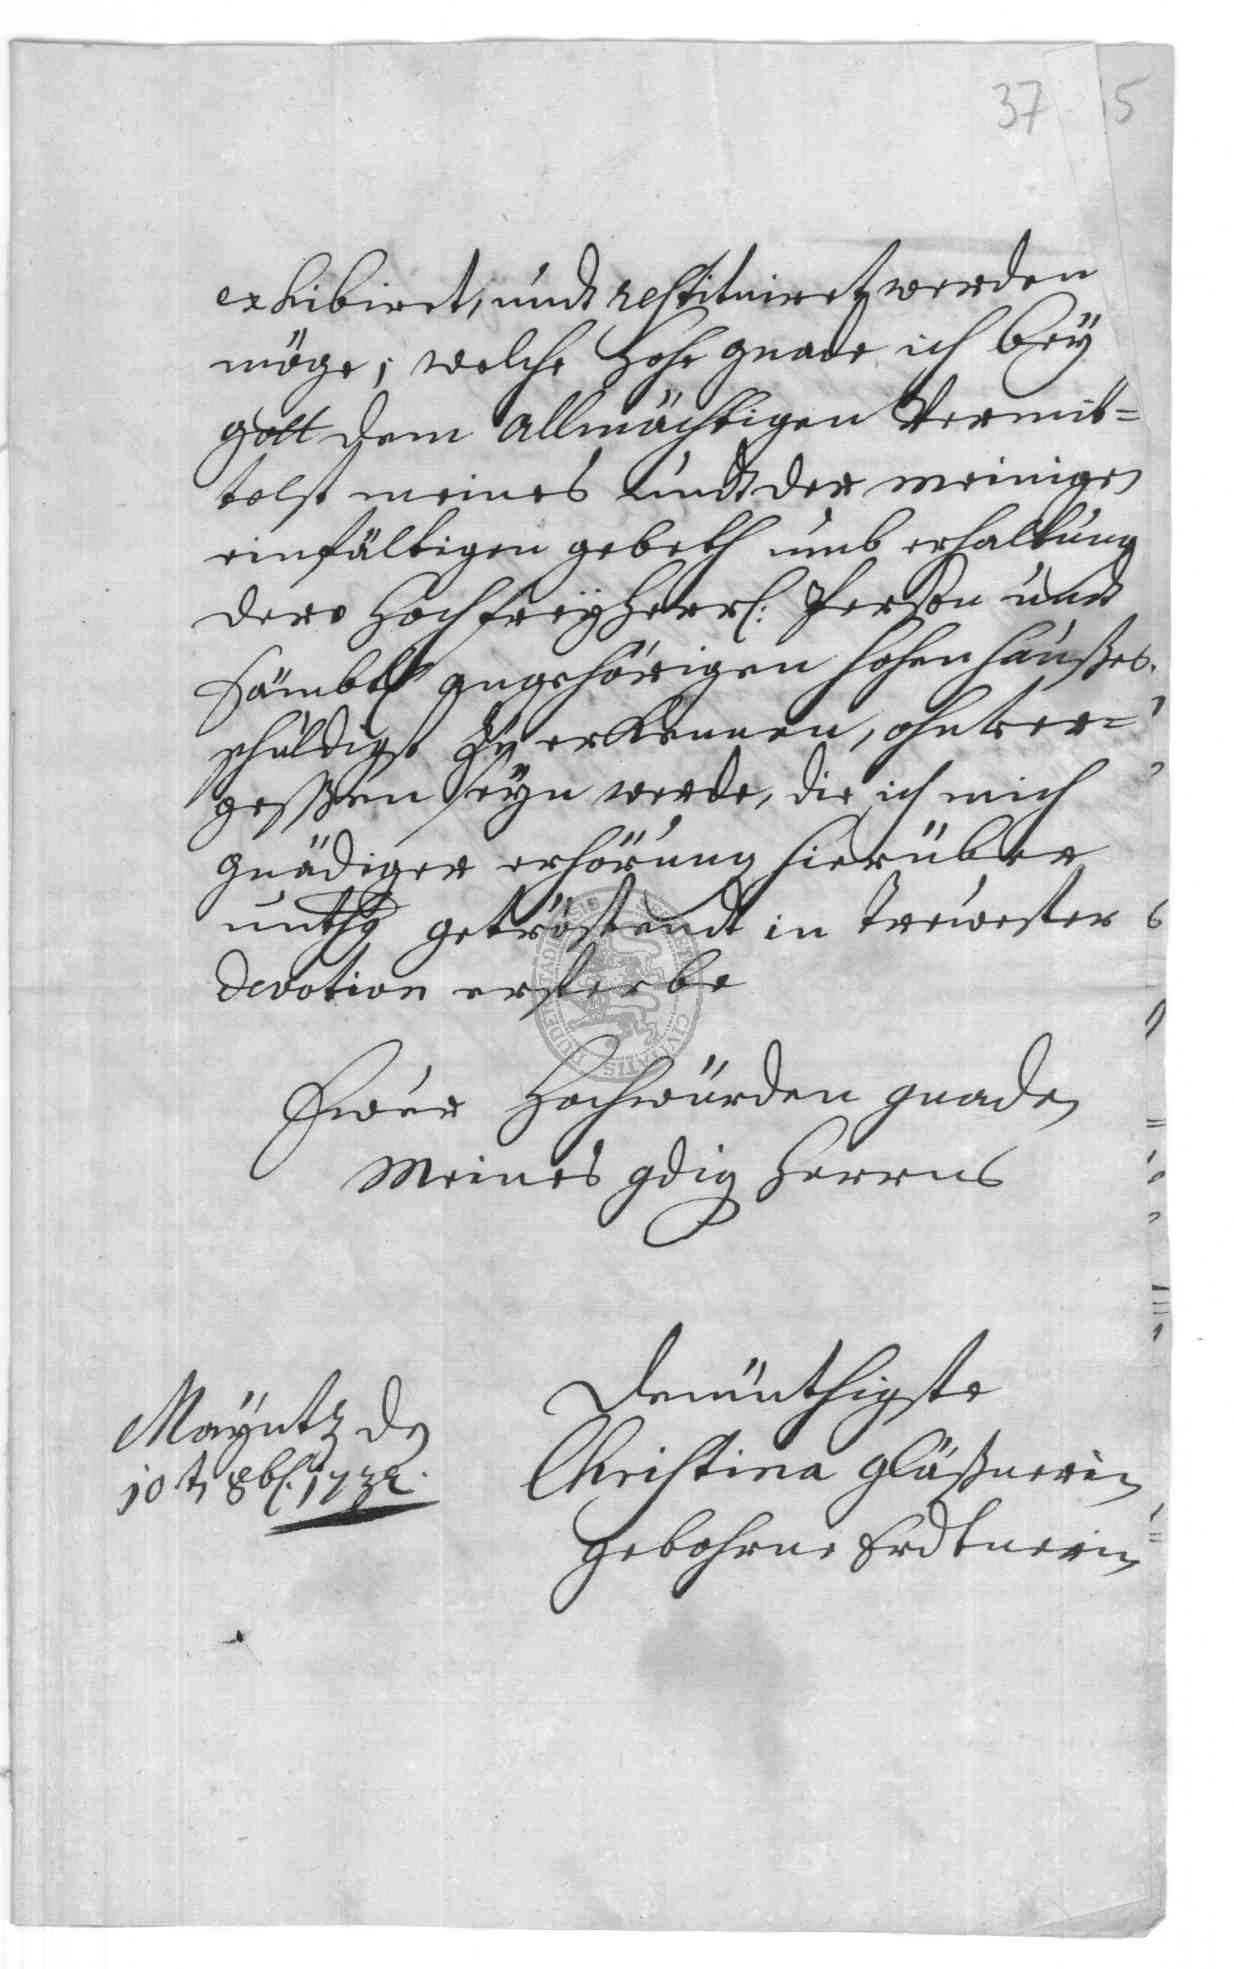 37 5
exhibiret, undt restituiret werden
möge; welche hohe gnade ich bey
gott dem allmächtigen Vermit=
telst meines undt der meinigen
einfältigen gebeth umb erhaltung
dero Hochfreyherrl: Person undt
sämbtl angehörigen hohen haußes
schuldigst zu erkennen, ohnver=
gessen seyn werde, die ich mich
gnädiger erhörung hierüber
unthg getröstendt in trewester
devotion ersterbe
Ewer Hochwürden gnaden
Meines gdig Herrns
Demüthigste
Christina gläßnerin
gebohrne Erdtnerin
Mayntz den
10t 8bl. 1732.